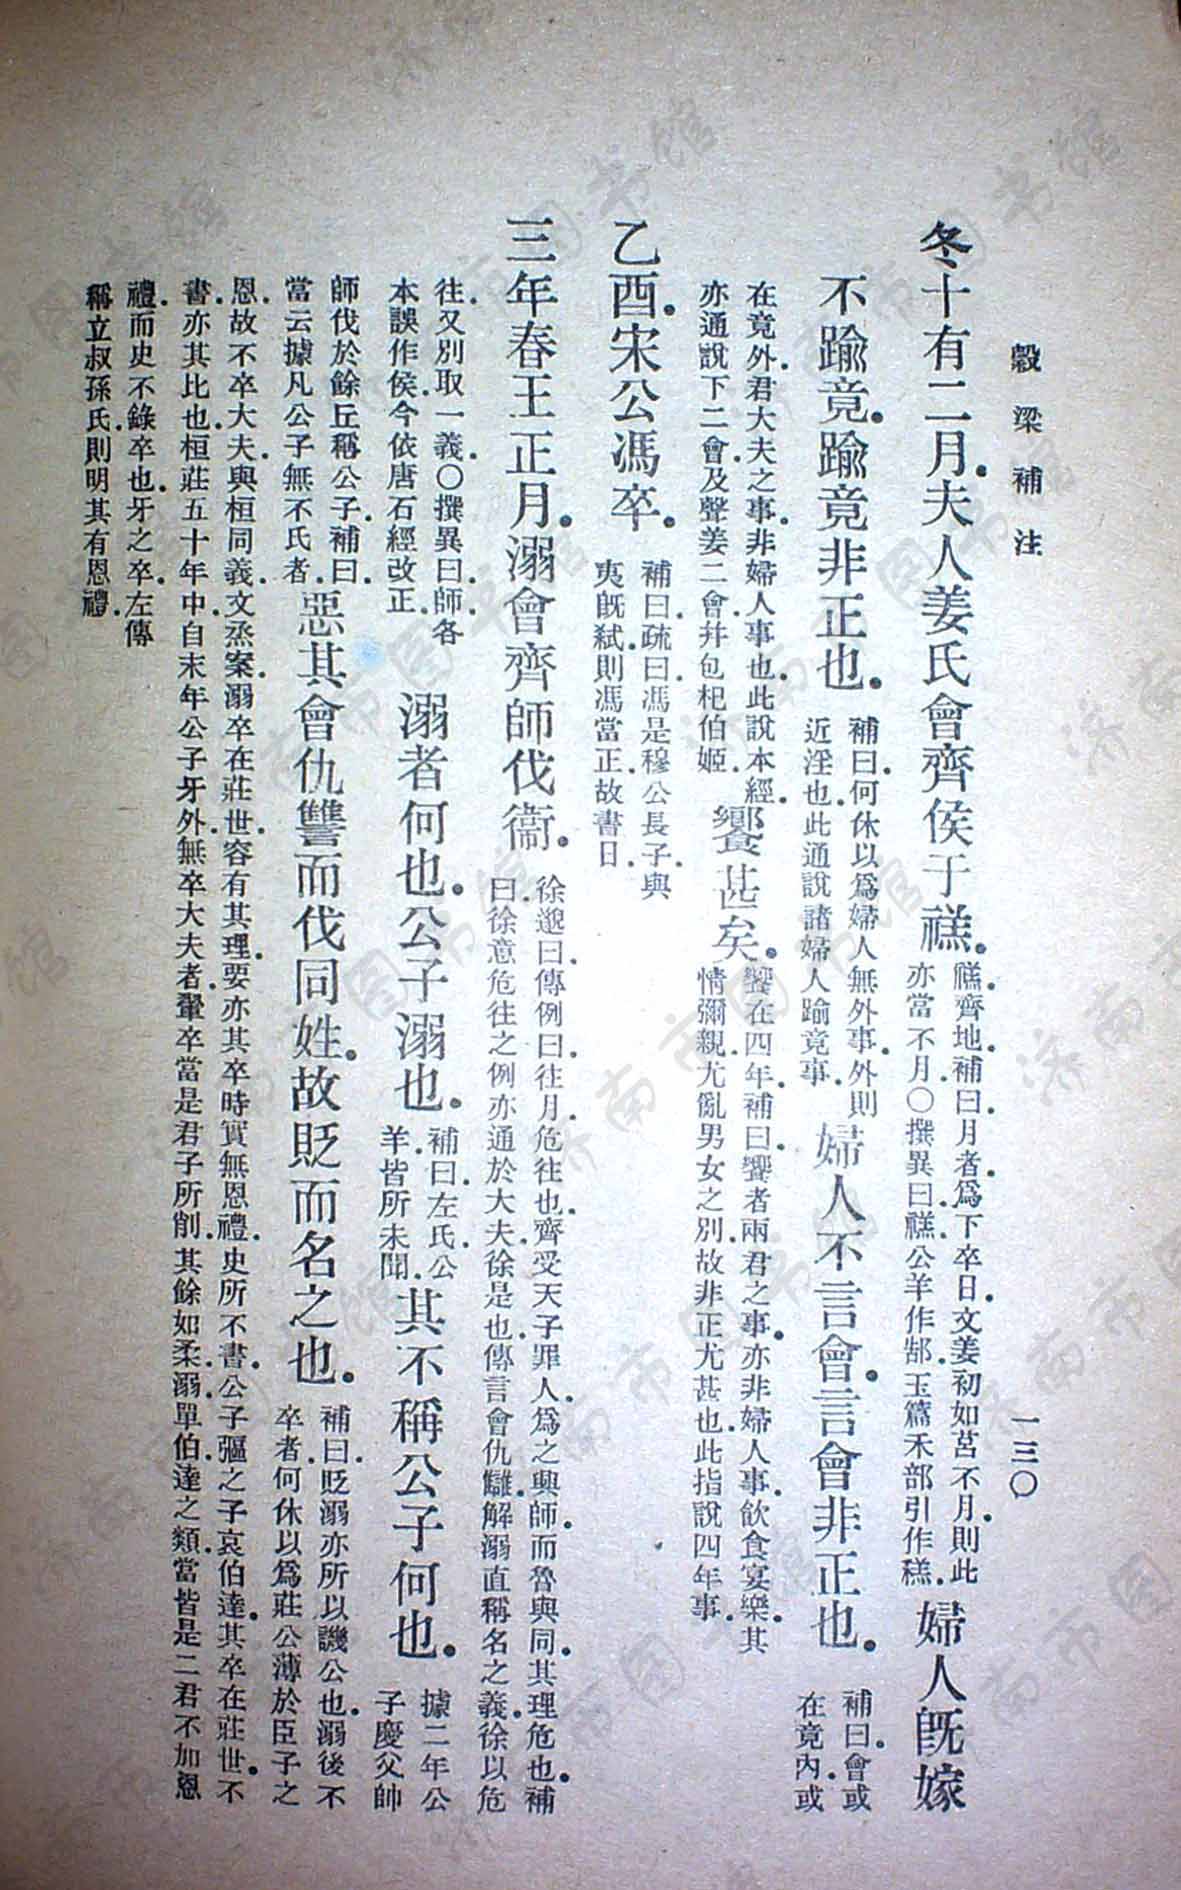 穀梁補注
一三〇
冬十有二月.夫人姜氏會齊侯于禚.
禚齊地.補曰.月者.爲下卒日.文姜初如莒不月.則此
亦當不月.〇撰異曰.禚.公羊作郜.玉篇禾部引作糕.
婦人既嫁
不踰竟.踰竟非正也.
補曰.何休以爲婦人無外事.外則
近淫也.此通說諸婦人踰竟事.
婦人不言會.言會非正也.
補曰.會或
在竟內.或
在竟外.君大夫之事.非婦人事也.此說本經.
亦通說下二會.及聲姜二會.幷包杞伯姬.
饗甚矣.
饗在四年.補曰.饗者兩君之事.亦非婦人事.飲食宴樂.其
情彌親.尤亂男女之別.故非正尤甚也.此指說四年事.
乙酉.宋公馮卒.
補曰.疏曰.馮是穆公長子.與
夷既弑.則馮當正.故書日.
三年春王正月.溺會齊師伐衞.
徐邈曰.傳例曰.往月.危往也.齊受天子罪人.爲之興師.而魯與同.其理危也.補
曰.徐意危往之例.亦通於大夫.徐是也.傳言會仇讎.解溺直稱名之義.徐以危
往.又別取一義.〇撰異曰.師.各
本誤作侯.今依唐石經改正.
溺者何也.公子溺也.
補曰.左氏公
羊.皆所未聞.
其不稱公子何也.
據二年公
子慶父帥
師伐於餘丘稱公子.補曰.
當云據凡公子無不氏者.
惡其會仇讐而伐同姓.故貶而名之也.
補曰.貶溺亦所以譏公也.溺後不
卒者.何休以爲莊公薄於臣子之
恩.故不卒大夫.與桓同義.文烝案.溺卒在莊世.容有其理.要亦其卒時實無恩禮.史所不書.公子彄之子哀伯達.其卒在莊世.不
書.亦其比也.桓莊五十年中.自末年公子牙外.無卒大夫者.翬卒當是君子所削.其餘如柔.溺.單伯.達之類.當皆是二君不加恩
禮.而史不錄卒也.牙之卒.左傳
稱立叔孫氏.則明其有恩禮.